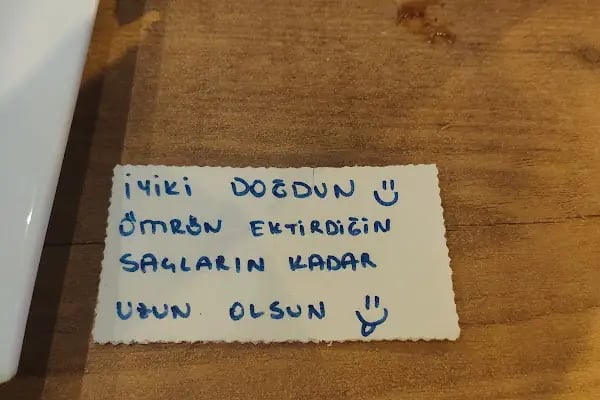 İYİKİ DOĞDUN Ü
ÖMRÜN EKTİRDİĞİN
SAÇLARIN KADAR
UZUN OLSUN Ü